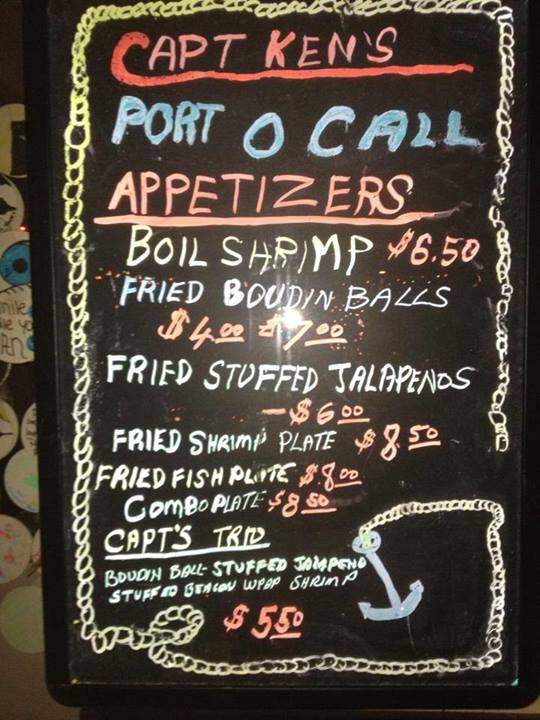 CAPT KEN'S
PORT O CALL
APPETIZERS
BOIL SHRIMP $6.50
FRIED BOUDIN BALLS
$4.00 $7.00
FRIED STUFFED JALAPENOS
- $6.00
FRIED SHRIMP PLATE $8.50
FRIED FISH PLATE $8.00
COMBO PLATE $8.50
CAPT'S TRIO
BOUDIN BALL- STUFFED JALAPENO
STUFFED BEACON WRAP SHRIMP
$5.50